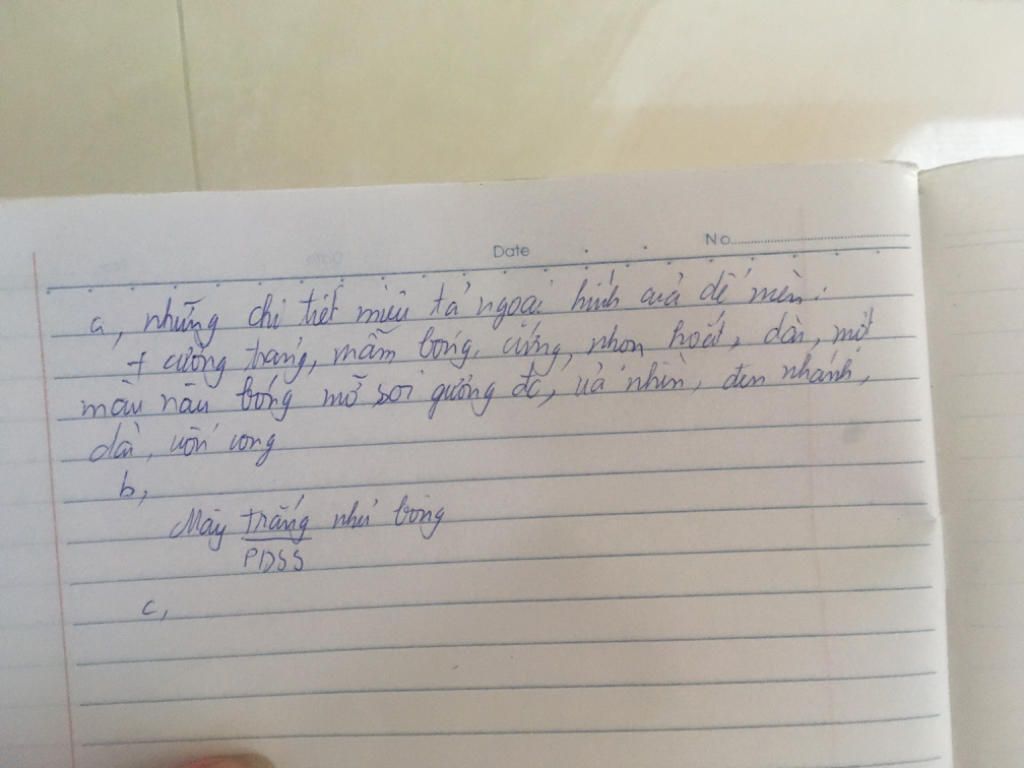 Date No
a, những chi tiết miêu tả ngoại hình của dế mèn:
+ cường tráng, mẫm bóng, cứng, nhọn hoắt, dài, một
màu nâu bóng mỡ soi gương đc, ưa nhìn, đen nhánh,
dài, uốn cong
b,
Mây trắng như bông
PDSS
c,